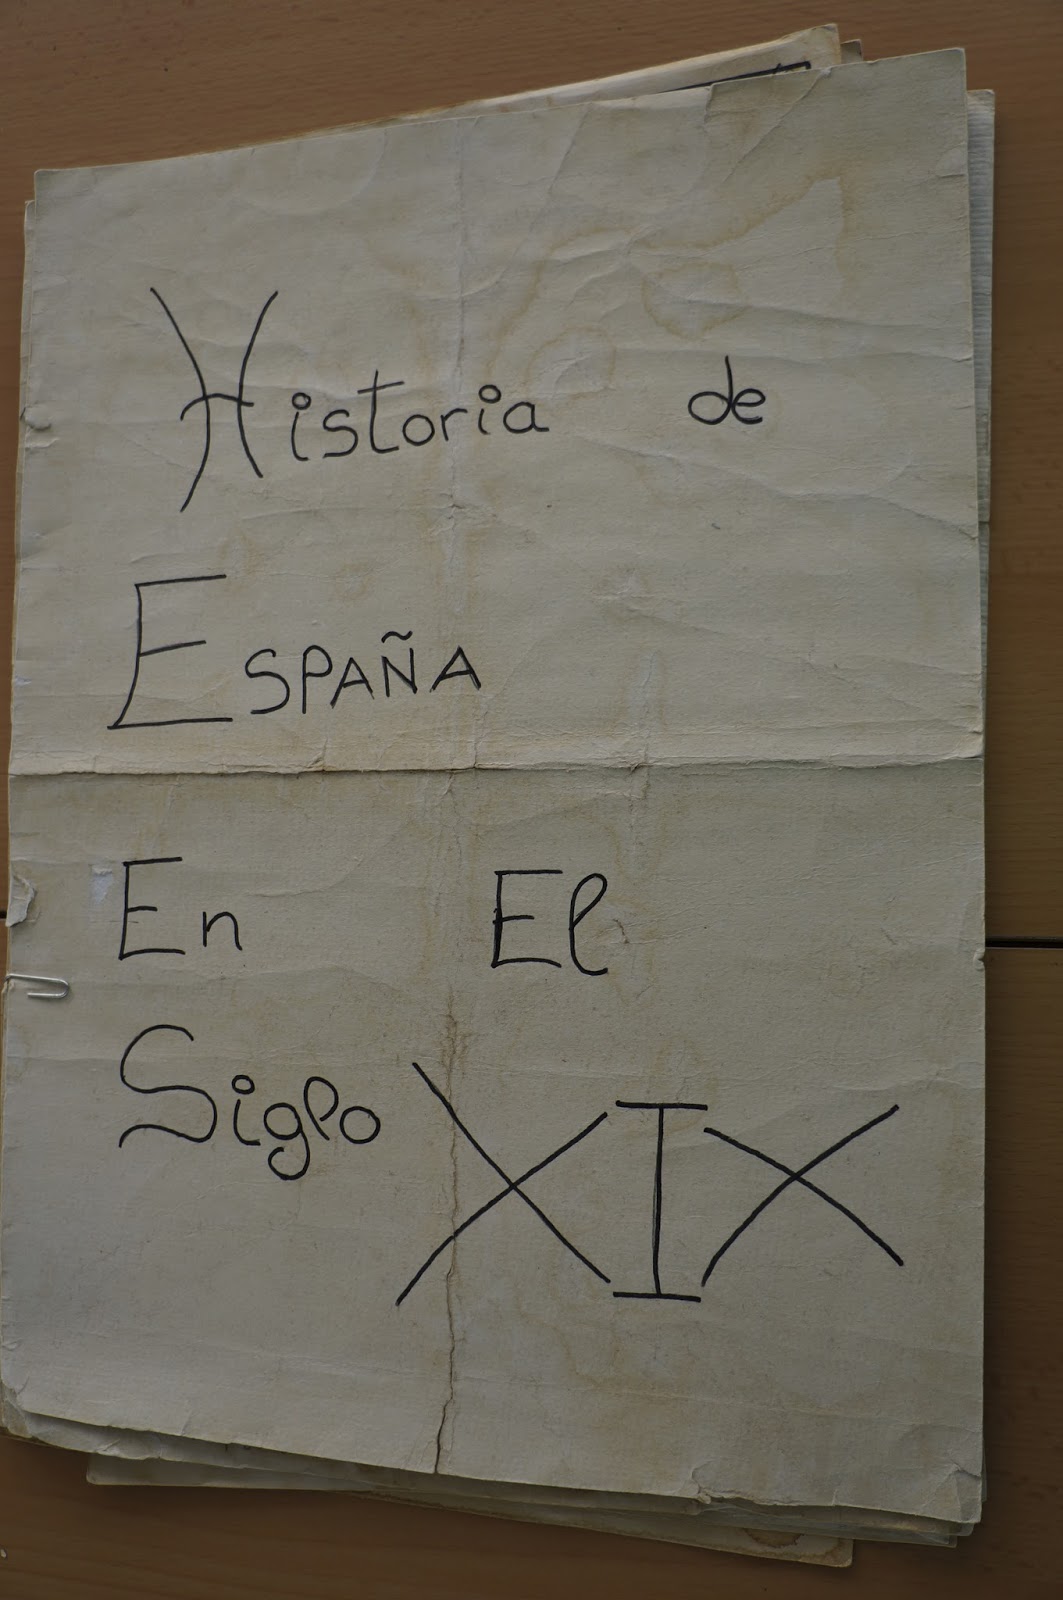 Historia de
ESPAÑA
En El
Siglo XIX